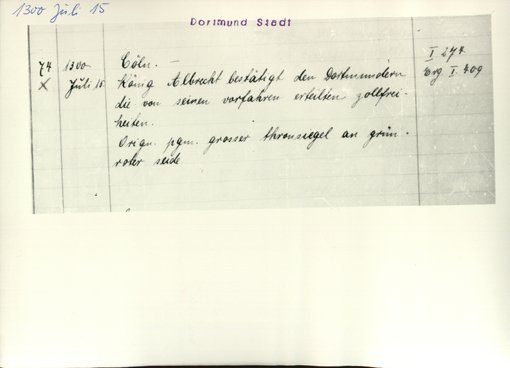 1300 Juli 15
Dortmund Stadt
74 1300 Cöln. — I 274
X Juli 15 König Albrecht bestätigt den Dortmundern Erg. I. 409
die von seinen vorfahren erteilten zollfrei-
heiten.
Orign. pgm. grosser thronsiegel an grün-
roter seide